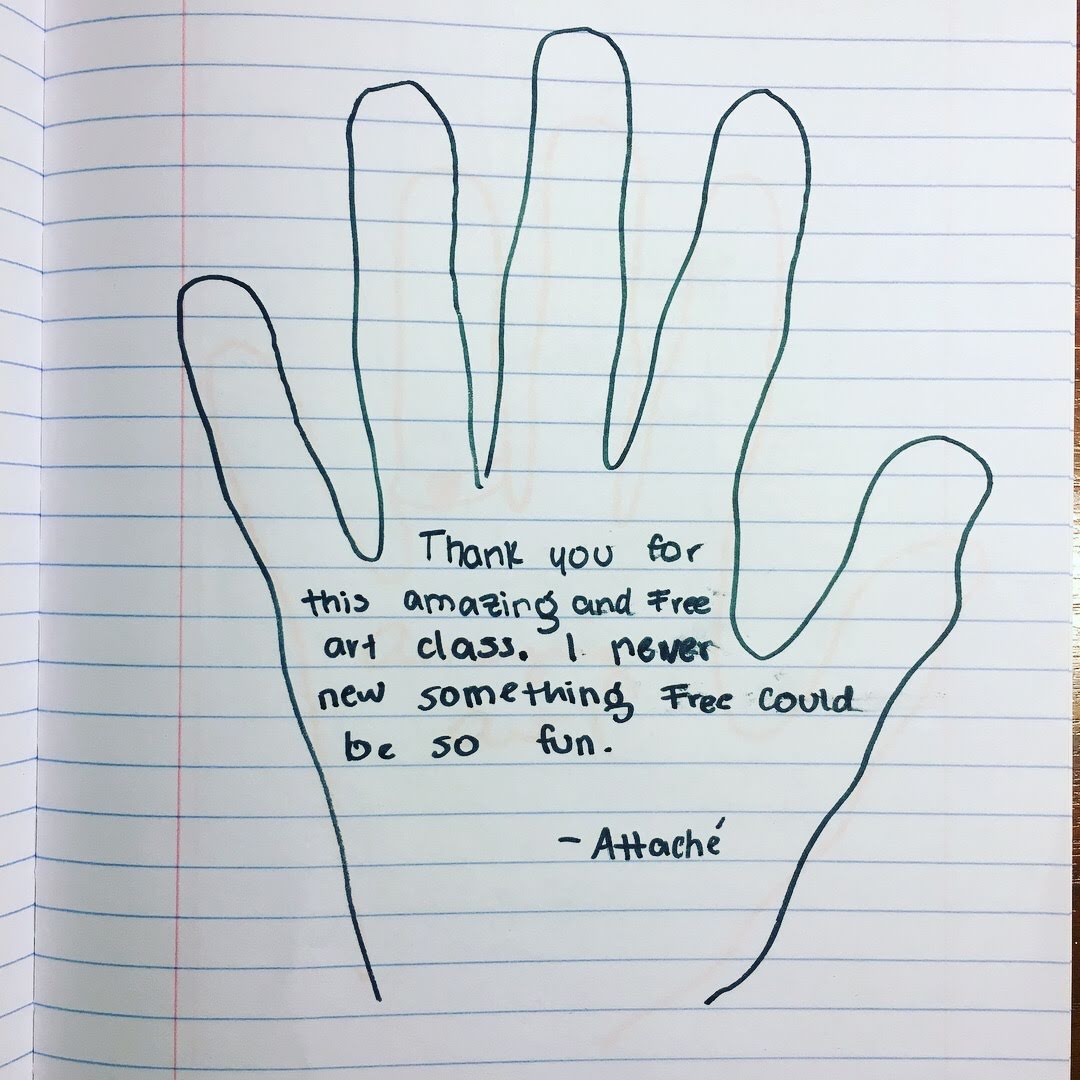 Thank you for
this amazing and Free
art class. I never
new something Free could
be so fun.
- Attaché